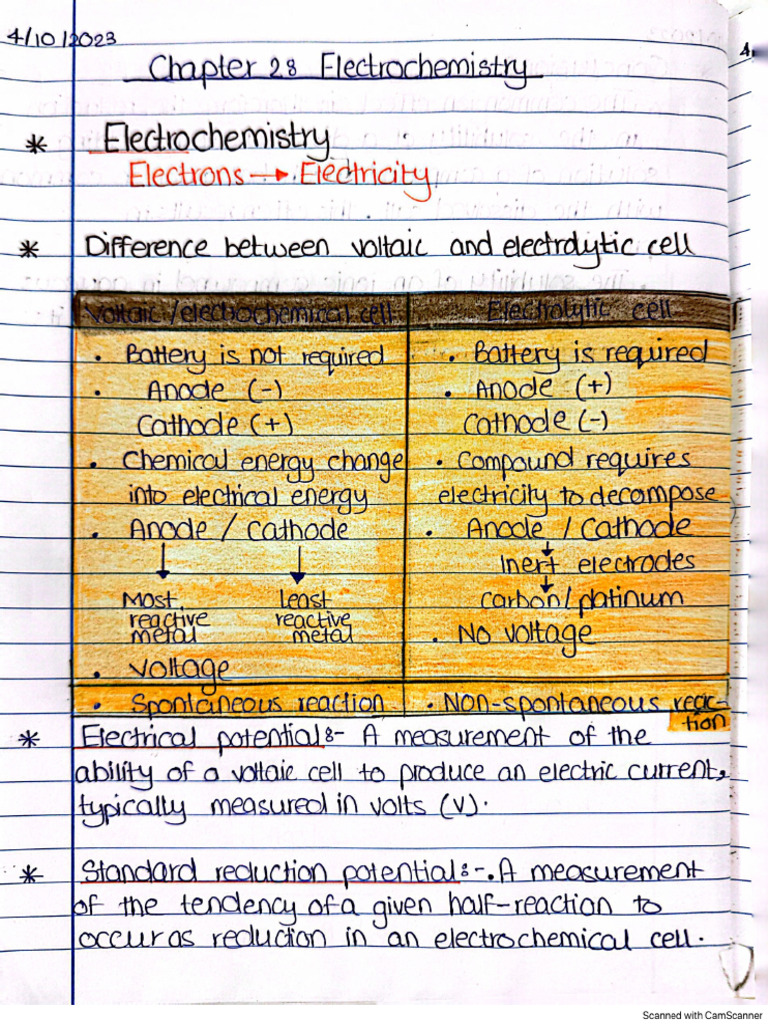 4/10/2023
Chapter 28 Electrochemistry
* Electrochemistry
Electrons → Electricity
* Difference between voltaic and electrolytic cell
Voltaic/electrochemical cell
• Battery is not required
• Anode (-)
Cathode (+)
• Chemical energy change
into electrical energy
• Anode / Cathode
↓ ↓
Most Least
reactive reactive
metal metal
• Voltage
• Spontaneous reaction
Electrolytic cell
• Battery is required
• Anode (+)
Cathode (-)
• Compound requires
electricity to decompose
• Anode / Cathode
↓
Inert electrodes
↓
Carbon/platinum
• No voltage
• Non-spontaneous reac-
tion
* Electrical potential:- A measurement of the
ability of a voltaic cell to produce an electric current,
typically measured in volts (V).
* Standard reduction potential:-. A measurement
of the tendency of a given half-reaction to
occur as reduction in an electrochemical cell.
Scanned with CamScanner